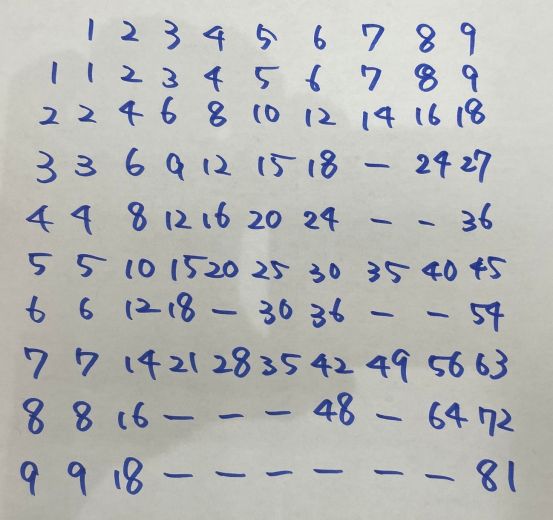 1 2 3 4 5 6 7 8 9
1 1 2 3 4 5 6 7 8 9
2 2 4 6 8 10 12 14 16 18
3 3 6 9 12 15 18 — 24 27
4 4 8 12 16 20 24 — — 36
5 5 10 15 20 25 30 35 40 45
6 6 12 18 — 30 36 — — 54
7 7 14 21 28 35 42 49 56 63
8 8 16 — — — 48 — 64 72
9 9 18 — — — — — — 81